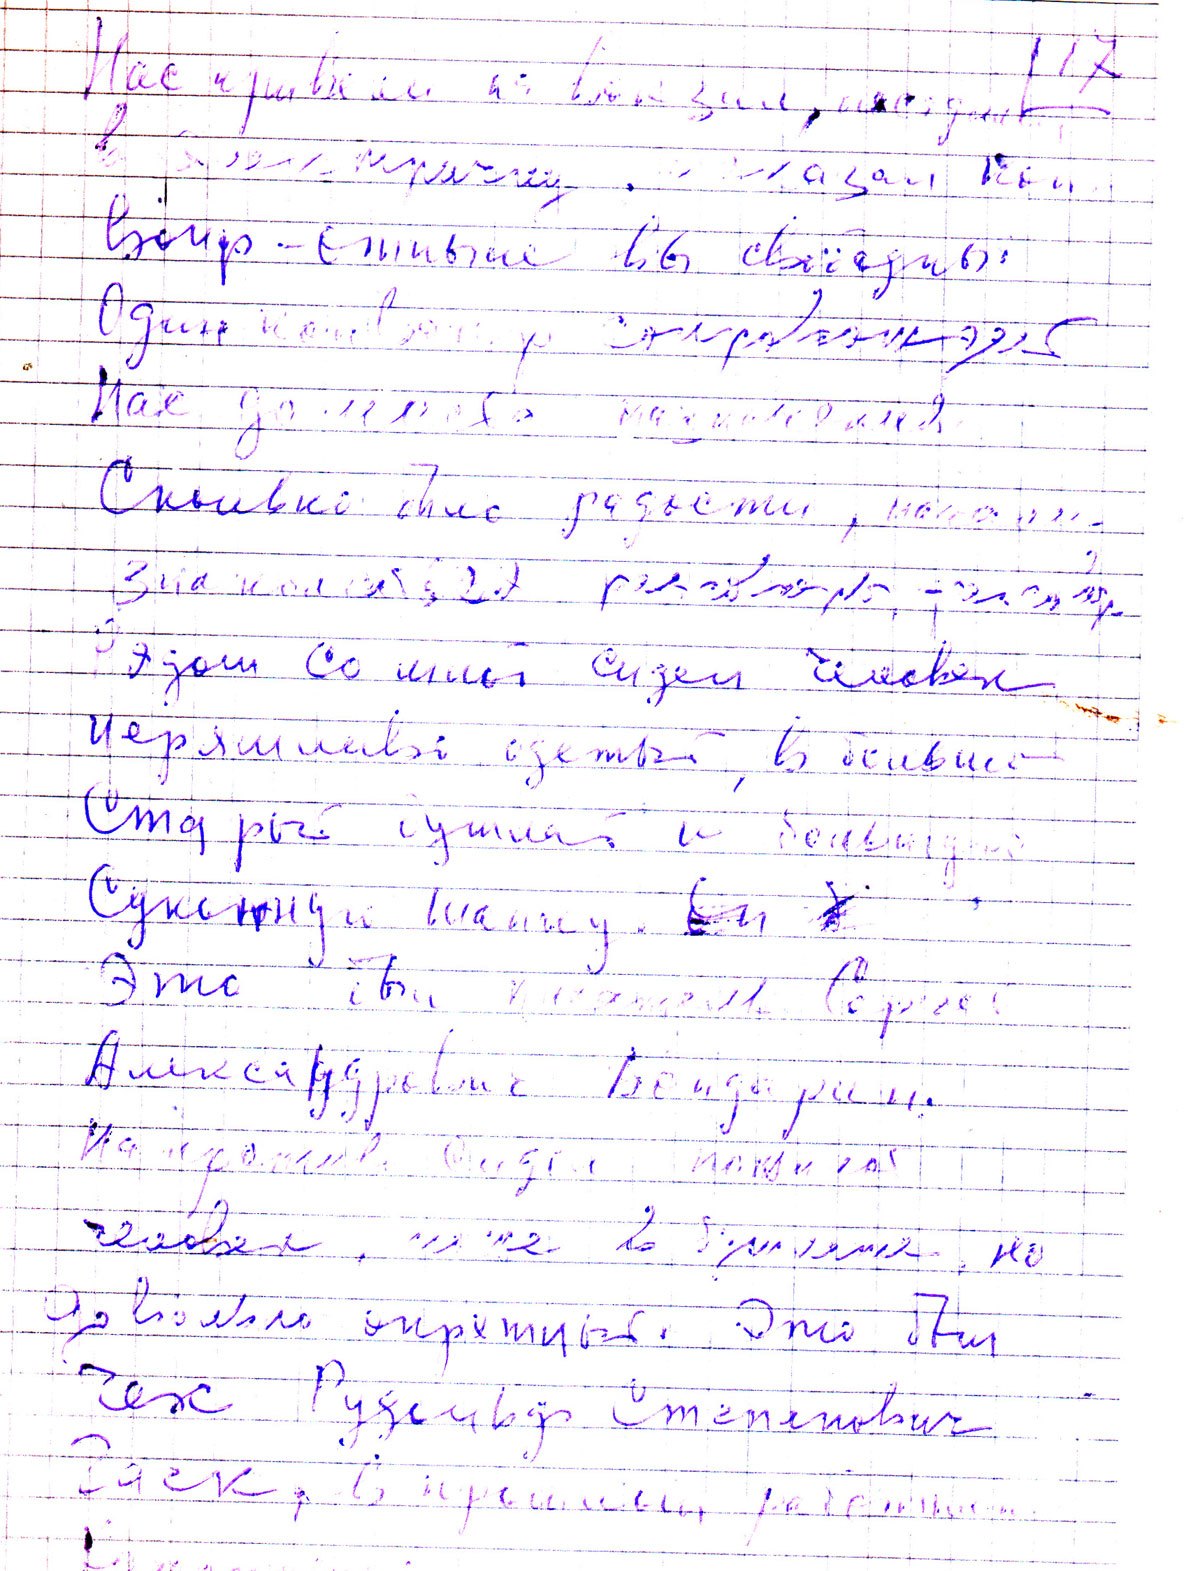 117
Нас привели на вокзал, посадили
в электричку. сказал Кон
воир - отныне вы свободны.
Один конвоир сопровождал
Нас до места назначения.
Сколько было радости, начали
знакомиться
Рядом со мной сидел человек
неряшливо одетый, в больш
Старый бушлат и
Суконную шапку.
Это был писатель Сергей
Александрович Бондарин.
Напротив сидел пожилой
человек, тоже в бушлате, но
довольно опрятный. Это был
Чех Рудольф Степенович
в прошлом работник